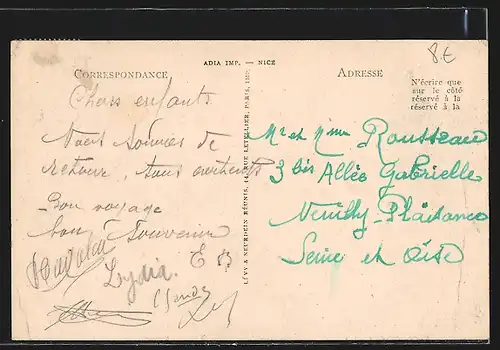 8.€
ADIA IMP. — NICE
CORRESPONDANCE
ADRESSE
N'écrire que
sur le côté
réservé à la
réservé à la
Chers enfants
Nous sommes de
retour, tous
Bon voyage
bon souvenir
E B
Lydia.
LÉVY & NEURDEIN RÉUNIS, RUE LETELLIER, PARIS
Mr et Mme Rousseau
3 bis Allée Gabrielle
Neuilly-Plaisance
Seine et Oise